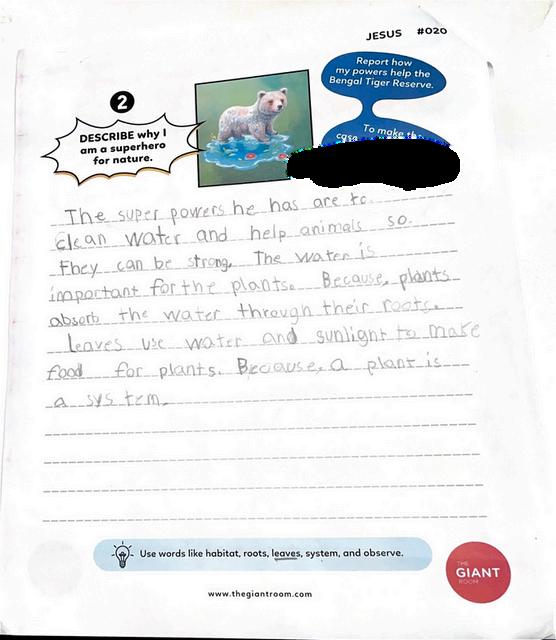 JESUS #020
Report how
my powers help the
Bengal Tiger Reserve.
2
DESCRIBE why I
am a superhero
for nature.
To make
The super powers he has are to
clean water and help animals so
they can be strong. The water is
important for the plants. Because, plants
absorb the water through their roots.
leaves use water and sunlight to make
food for plants. Because, a plant is
a system.
Use words like habitat, roots, leaves, system, and observe.
THE
GIANT
ROOM
www.thegiantroom.com